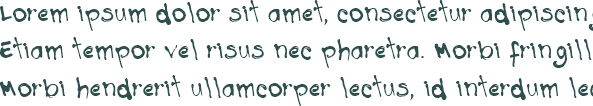 Lorem ipsum dolor sit amet, consectetur adipiscing
Etiam tempor vel risus nec pharetra. Morbi fringill
Morbi hendrerit ullamcorper lectus, id interdum leo